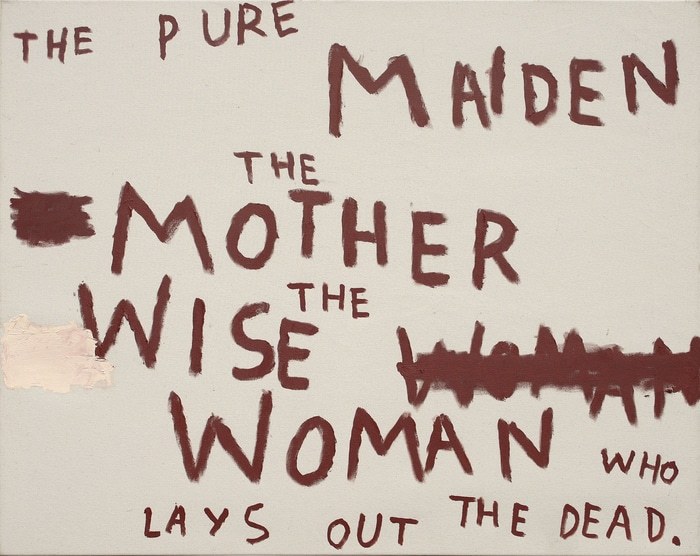 THE PURE
MAIDEN
THE
MOTHER
THE
WISE WOMAN
WOMAN WHO
LAYS OUT THE DEAD.